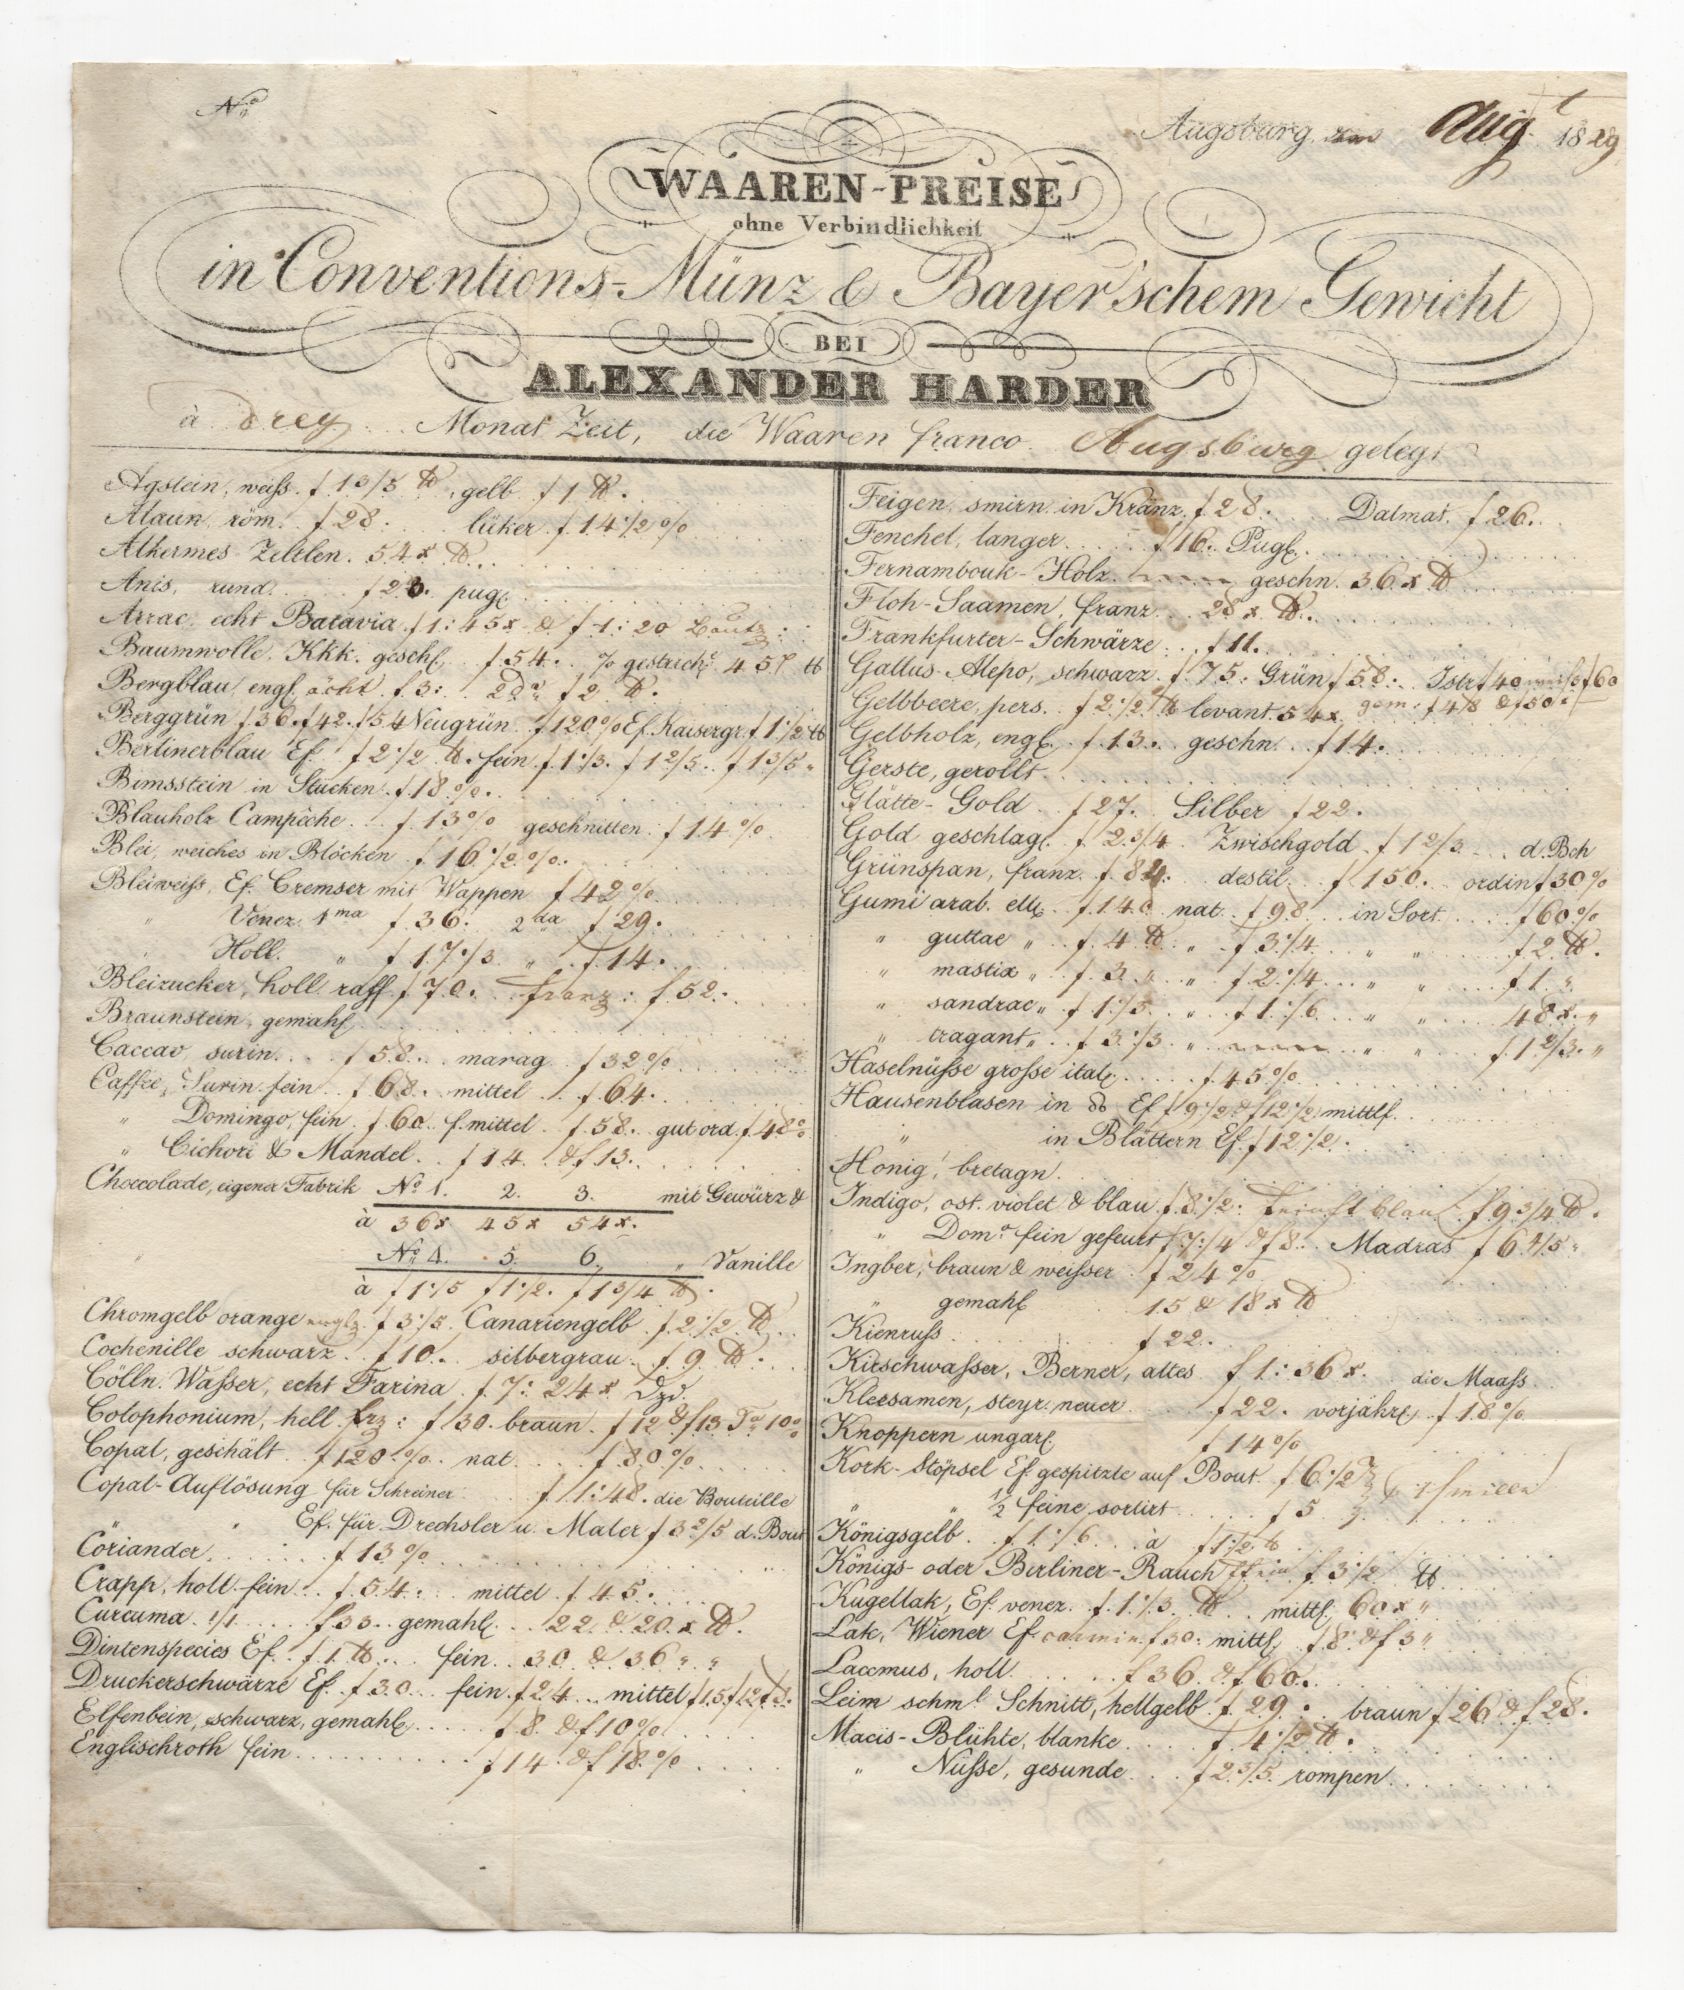 No
Augsburg, den Aug. 1829
WAAREN-PREISE
ohne Verbindlichkeit
in Conventions-Münz & Bayer'schem Gewicht
BEI
ALEXANDER HARDER
à drey Monat Zeit, die Waaren franco Augsburg gelegt
Agstein, weiss f 1 3/5 ℔, gelb f 1 ℔.
Alaun, röm. f 28. lüker f 14 1/2 %
Alkermes Zeltlen. 54 x ℔
Anis, rund f 20. pugl.
Arrac, echt Batavia f 1:45x & f 1:20 Boutz.
Baumwolle, Kkk. geschl. f 54. % gestrich.
Bergblau, engl. ächt f 3. 2da f 2 ℔.
Berggrün f 36. f 42. f 54 Neugrün f 120 % Ef. Kaisergr. f 1 1/2 ℔
Berlinerblau Ef. f 2 1/2 ℔. fein f 1 1/3. f 1 2/5. f 1 3/5 "
Bimsstein in Stücken f 18 %.
Blauholz Campêche f 13 % geschnitten f 14 %.
Blei, weiches in Blöcken f 16 1/2 %.
Bleiweiss, Ef. Cremser mit Wappen f 42 %
" Venez. 1ma f 36. 2da f 29.
Holl. " f 17 1/3 " f 14.
Bleizucker, holl. raff. f 70. franz: f 52.
Braunstein, gemahl.
Caccao, surin. f 58. marag f 32 %
Caffee, Surin fein f 68. mittel f 64.
" Domingo, fein f 60 f. mittel f 58. gut ord. f 48 %
" Cichori & Mandel f 14 & f 13.
Choccolade, eigener Fabrik No 1. 2. 3. mit Gewürz &
à 36x 45x 54x.
" No 4. 5. 6. " Vanille
à f 1 1/5 f 1 1/2. f 1 3/4 ℔.
Chromgelb orange engl. f 3 1/5. Canariengelb f 2 1/2 ℔
Cochenille schwarz f 10. silbergrau f 9 ℔.
Cölln. Wasser, echt Farina f 7: 24x Dzd.
Colophonium, hell frz: f 30. braun f 12 & f 13
Copal, geschält f 120 % nat f 80 %
Copal-Auflösung für Schreiner f 1:48. die Bouteille
" " Ef. für Drechsler u. Maler f 3 2/5 d. Bout
Coriander f 13 %
Crapp, holl. fein f 54. mittel f 45.
Curcuma 1/1 f 33. gemahl. 22 & 20 x ℔.
Dintenspecies Ef. f 1 ℔. fein 30 & 36 " "
Druckerschwärze Ef. f 30 fein f 24 mittel f 15 f 12
Elfenbein, schwarz, gemahl. f 8 & f 10 %
Englischroth fein f 14 & f 18 %
Feigen, smirn. in Kränz. f 28. Dalmat. f 26.
Fenchel, langer f 16. Pugl.
Fernambouk-Holz geschn. 36 x ℔
Floh-Saamen, franz. 28 x ℔.
Frankfurter-Schwärze f 11.
Gallus Alepo, schwarz f 75. Grün f 58. Istr f 40 weiss f 60
Gelbbeere, pers. f 2 1/2 ℔ levant. 54 x.
Gelbholz, engl. f 13. geschn. f 14.
Gerste, gerollt
Glätte-Gold f 27. Silber f 22.
Gold geschlag. f 2 3/4. Zwischgold f 1 2/3 d. Bch
Grünspan, franz. f 84. destil. f 150. ordin f 30 %
Gumi arab. elle. f 140 nat f 98 in Sort f 60 %
" guttae " f 4 ℔ " f 3 1/4 " " f 2 ℔.
" mastix " f 3 " " f 2 1/4 " " f 1 "
" sandrac " f 1 1/3 " f 1 1/6 " " 48 x. "
" tragant " f 3 1/3 " " " f 1 2/3. "
Haselnüsse grosse ital. f 45 %
Hausenblasen in Ef. f 9 1/2 & f 12 1/2 mittlf.
" in Blättern Ef. f 12 1/2.
Honig, bretagn.
Indigo, ost. violet & blau f 8 1/2. feinst blau f 9 3/4 ℔.
" Domo fein gefeurt f 7 1/4 & f 8. Madras f 6 4/5 "
Ingber, braun & weisser f 24 %
" gemahl. 15 & 18 x ℔
Kienruss f 22.
Kirschwasser, Berner, altes f 1:36 x. die Maass
Kleesamen, steyr. neuer f 22. vorjähr. f 18 %
Knoppern ungar. f 14 %
Kork-Stöpsel Ef. gespitzte auf Bout. f 6 1/2
" " 1/2 feine sortirt f 5
Königsgelb f 1 1/6 à f 1 1/2 ℔
Königs- oder Berliner-Rauch ffein f 3 1/2 ℔
Kugellak, Ef. venez. f 1 1/3 ℔ mittl. 60 x "
Lak, Wiener Ef. carmin f 30. mittl. f 8 & f 3 "
Laccmus, holl. f 36 & f 60.
Leim schml Schnitt, hellgelb f 29. braun f 26 & f 28.
Macis-Blühte, blanke f 4 1/2 ℔.
" Nüsse, gesunde f 2 3/5. rompen